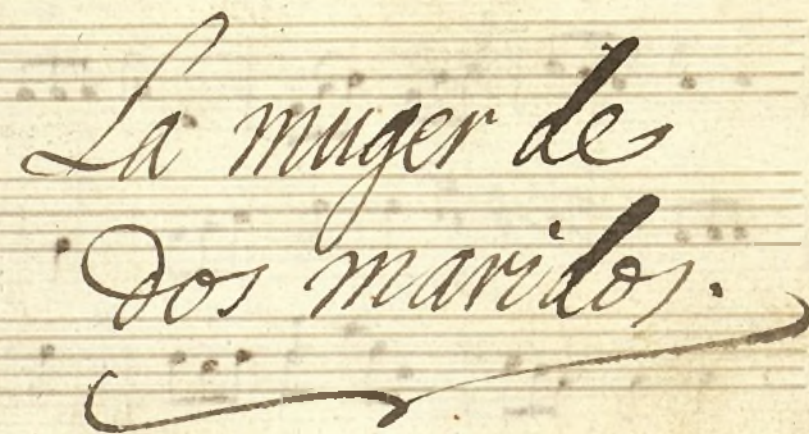 La muger de
dos maridos.